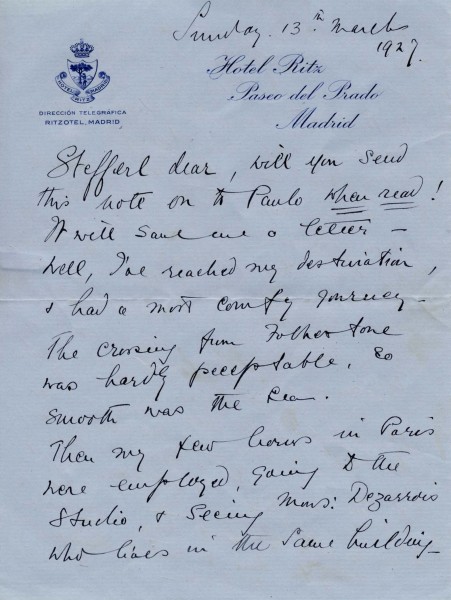 Sunday. 13th March
1927.
HOTEL RITZ MADRID
DIRECCIÓN TELEGRÁFICA
RITZOTEL, MADRID
Hotel Ritz
Paseo del Prado
Madrid
Stefferl dear, will you send
this note on to Paulo when read!
It will save me a letter –
Well, I've reached my destination,
& had a most comfy journey –
The crossing from Folkestone
was hardly peceptable, so
smooth was the sea.
Then my few hours in Paris
were employed, going to the
Studio, & seeing Mons: Dezarrois
who lives in the same building –